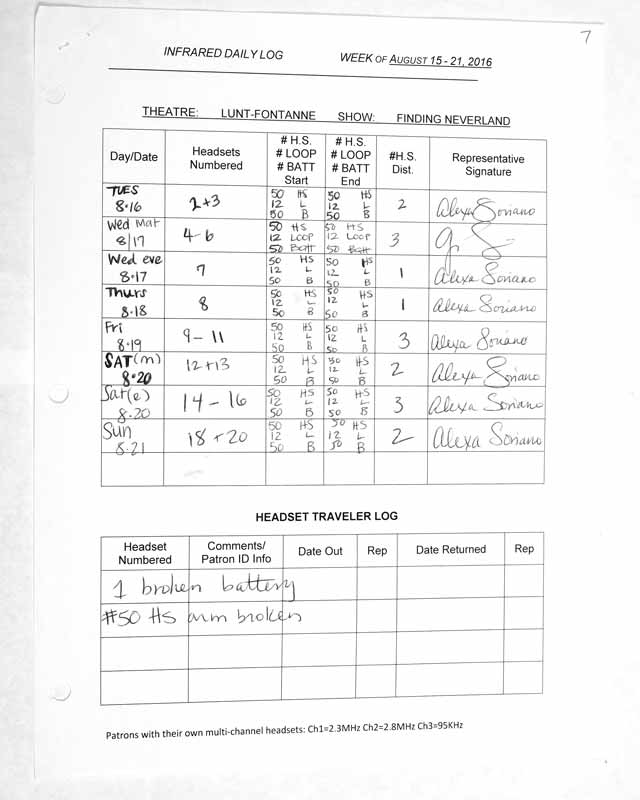 7
INFRARED DAILY LOG WEEK OF AUGUST 15 - 21, 2016
THEATRE: LUNT-FONTANNE SHOW: FINDING NEVERLAND
Day/Date Headsets Numbered # H.S. # LOOP # BATT Start # H.S. # LOOP # BATT End #H.S. Dist. Representative Signature
TUES 8·16 2+3 50 HS 12 L 50 B 50 HS 12 L 50 B 2 Alexa Soriano
Wed Mat 8/17 4-6 50 HS 12 LOOP 50 Batt 50 HS 12 LOOP 50 Batt 3
Wed eve 8·17 7 50 HS 12 L 50 B 50 HS 12 L 50 B 1 Alexa Soriano
Thurs 8·18 8 50 HS 12 L 50 B 50 HS 12 L 50 B 1 Alexa Soriano
Fri 8·19 9-11 50 HS 12 L 50 B 50 HS 12 L 50 B 3 Alexa Soriano
SAT(m) 8·20 12+13 50 HS 12 L 50 B 50 HS 12 L 50 B 2 Alexa Soriano
Sat(e) 8·20 14-16 50 HS 12 L 50 B 50 HS 12 L 50 B 3 Alexa Soriano
Sun 8·21 18+20 50 HS 12 L 50 B 50 HS 12 L 50 B 2 Alexa Soriano
HEADSET TRAVELER LOG
Headset Numbered Comments/ Patron ID Info Date Out Rep Date Returned Rep
1 broken battery
#50 HS arm broken
Patrons with their own multi-channel headsets: Ch1=2.3MHz Ch2=2.8MHz Ch3=95KHz